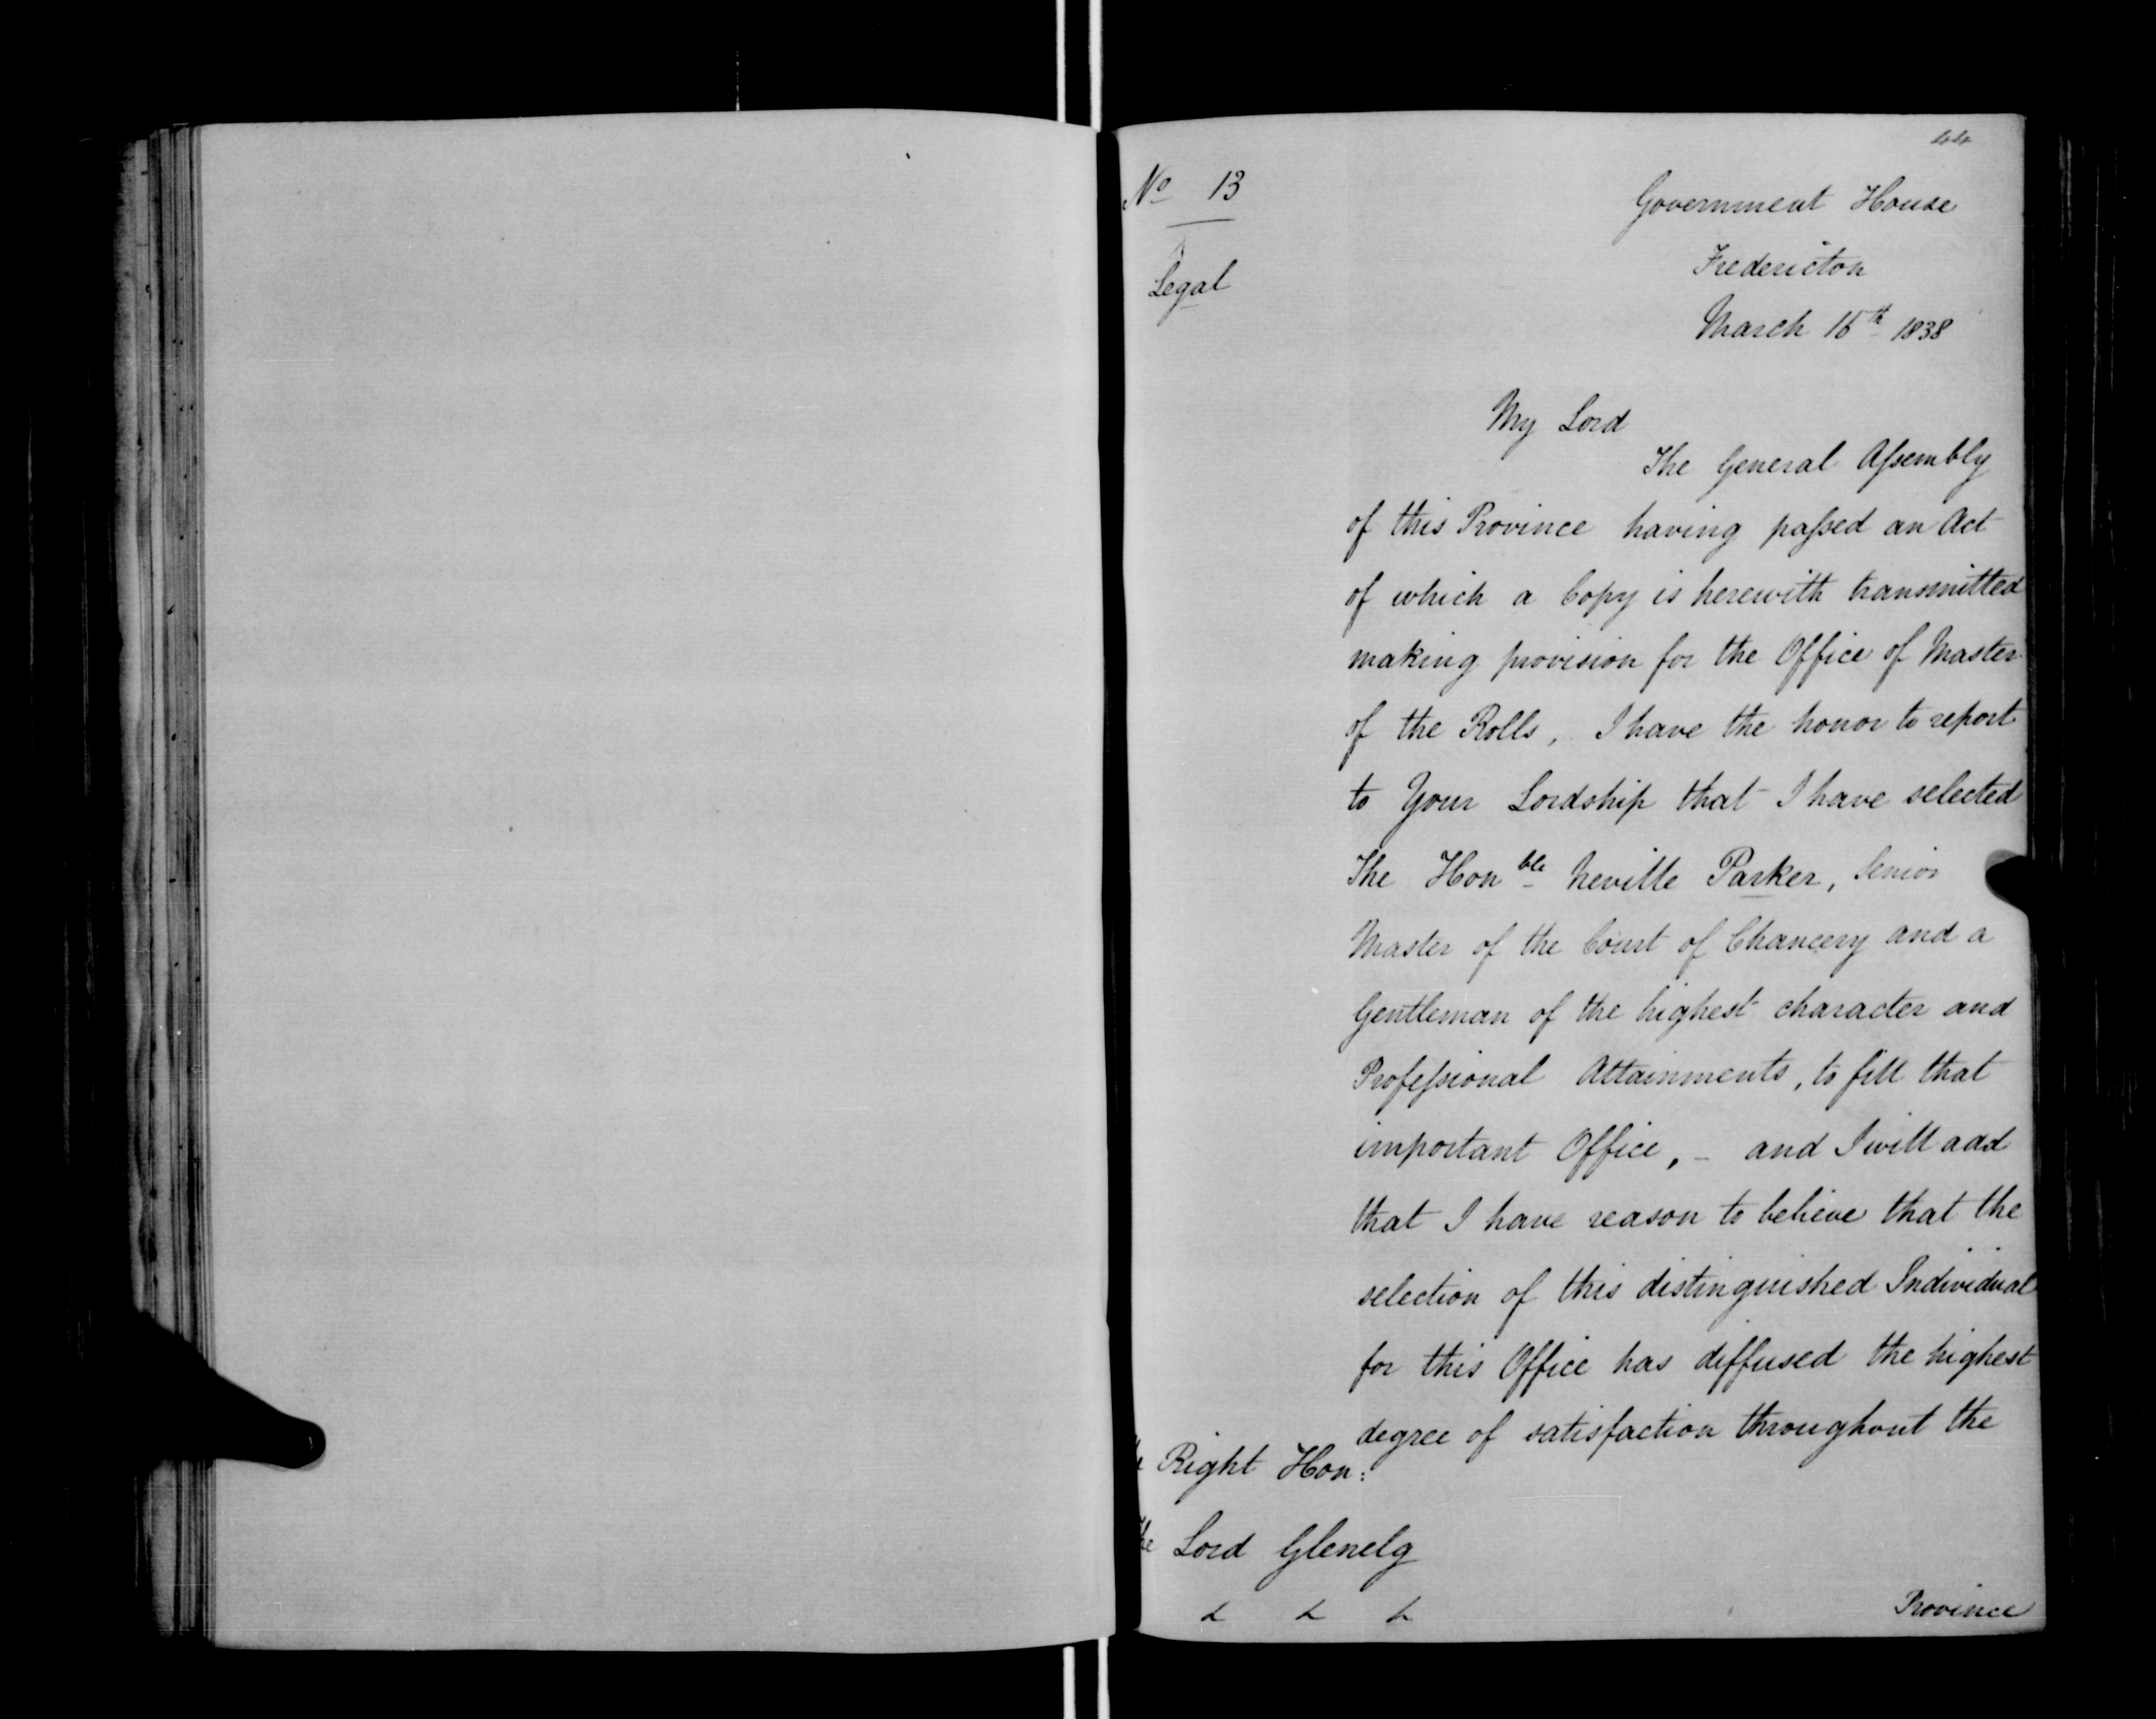 44
No 13
Legal
Government House
Fredericton
March 16th 1838
My Lord
The General Assembly
of this Province having passed an Act
of which a Copy is herewith transmitted
making provision for the Office of Master
of the Rolls, I have the honor to report
to Your Lordship that I have selected
The Honble Neville Parker, Senior
Master of the Court of Chancery and a
Gentleman of the highest character and
Professional Attainments, to fill that
important Office, - and I will add
that I have reason to believe that the
selection of this distinguished Individual
for this Office has diffused the highest
degree of satisfaction throughout the
Right Hon:
The Lord Glenelg
& & &
Province